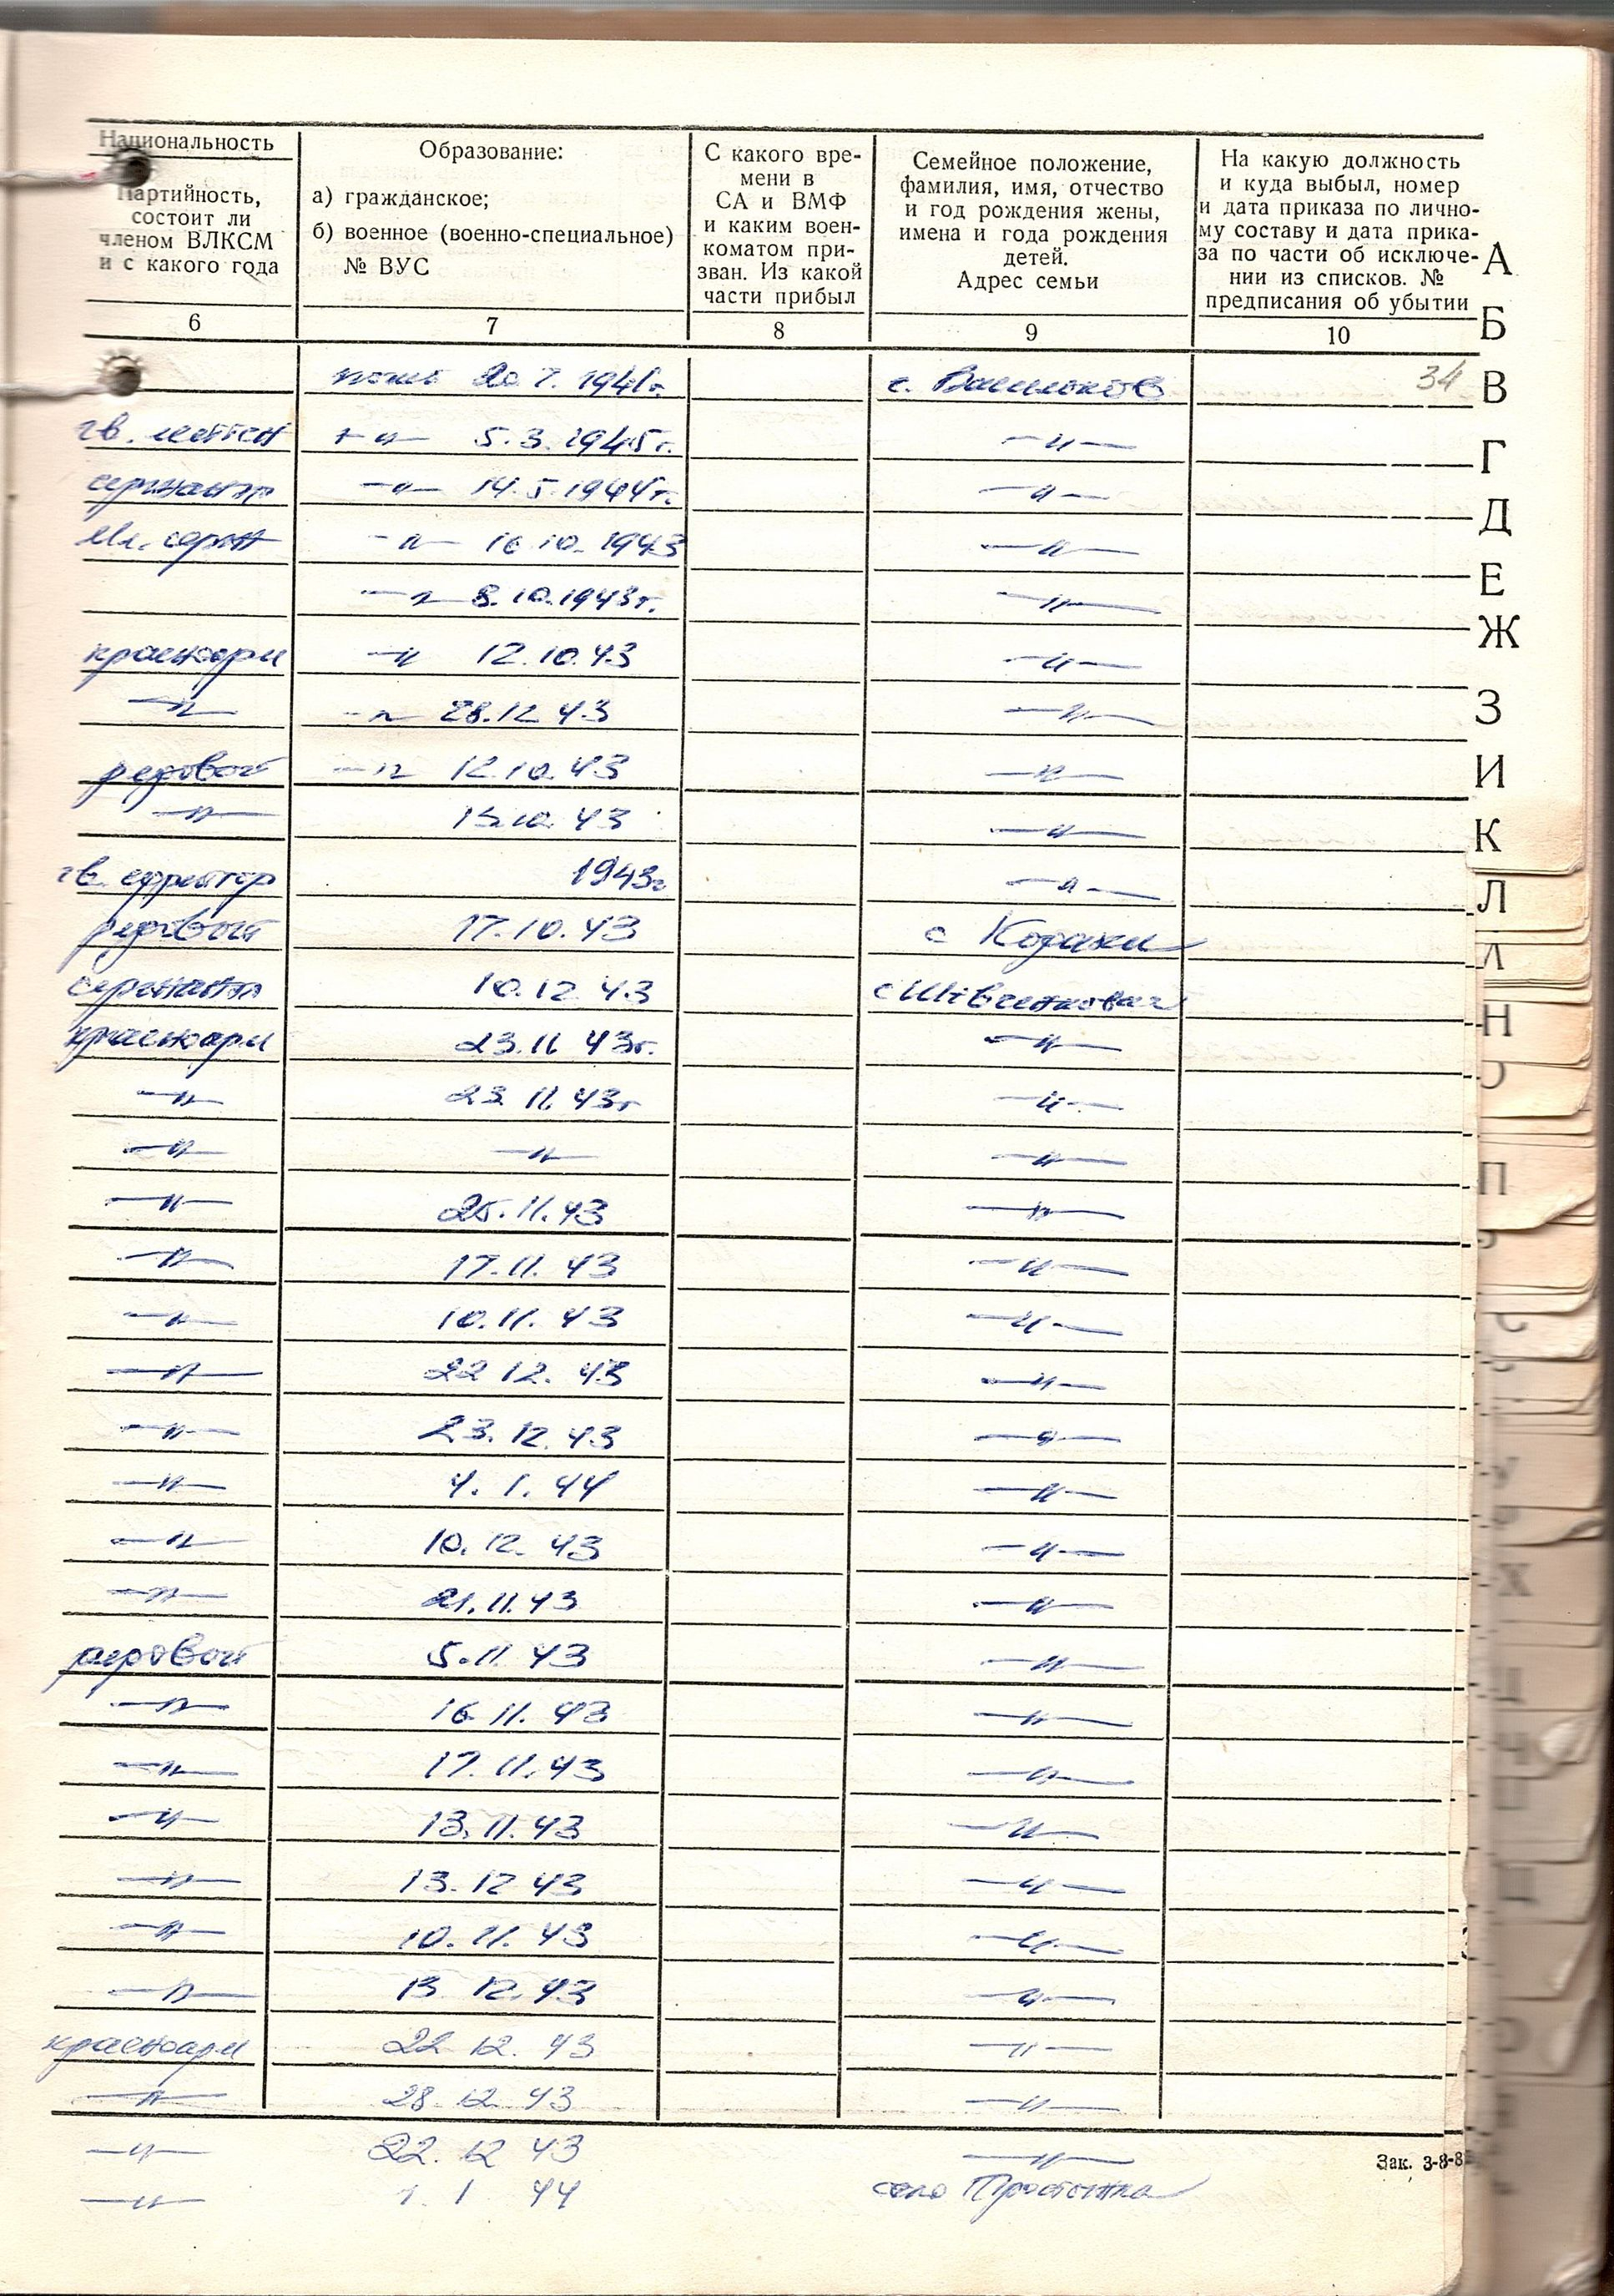 Национальность
Партийность,
состоит ли
членом ВЛКСМ
и с какого года
Образование:
а) гражданское;
б) военное (военно-специальное)
№ ВУС
С какого вре-
мени в
СА и ВМФ
и каким воен-
коматом при-
зван. Из какой
части прибыл
Семейное положение,
фамилия, имя, отчество
и год рождения жены,
имена и года рождения
детей.
Адрес семьи
На какую должность
и куда выбыл, номер
и дата приказа по лично-
му составу и дата прика-
за по части об исключе-
нии из списков. №
предписания об убытии
6 7 8 9 10
1941г. с. 34
гв. —"— 5.3.1945г. —"—
сержант —"— 14.5.1944г. —"—
мл. серж —"— 16.10.1943 —"—
—"— 8.10.1943г. —"—
красноарм —"— 12.10.43 —"—
—"— —"— 28.12 43 —"—
рядовой —"— 12.10.43 —"—
—"— 15.10.43 —"—
гв. ефрейтор 1943г —"—
рядовой 17.10.43 с
сержант 10.12 43 с
красноарм 23.11 43г. —"—
—"— 23.11.43г —"—
—"— —"— —"—
—"— 25.11.43 —"—
—"— 17.11.43 —"—
—"— 10.11.43 —"—
—"— 22 12.43 —"—
—"— 23.12.43 —"—
—"— 4.1.44 —"—
—"— 10.12.43 —"—
—"— 21.11.43 —"—
рядовой 5.11.43 —"—
—"— 16.11.43 —"—
—"— 17.11.43 —"—
—"— 13.11.43 —"—
—"— 13.12 43 —"—
—"— 10.11.43 —"—
—"— 13.12.43 —"—
красноарм 22 12.43 —"—
—"— 28.12.43 —"—
—"— 22.12 43 —"—
—"— 1.1 44 село
Зак. 3-8-8
А
Б
В
Г
Д
Е
Ж
З
И
К
Л
Н
П
У
Х